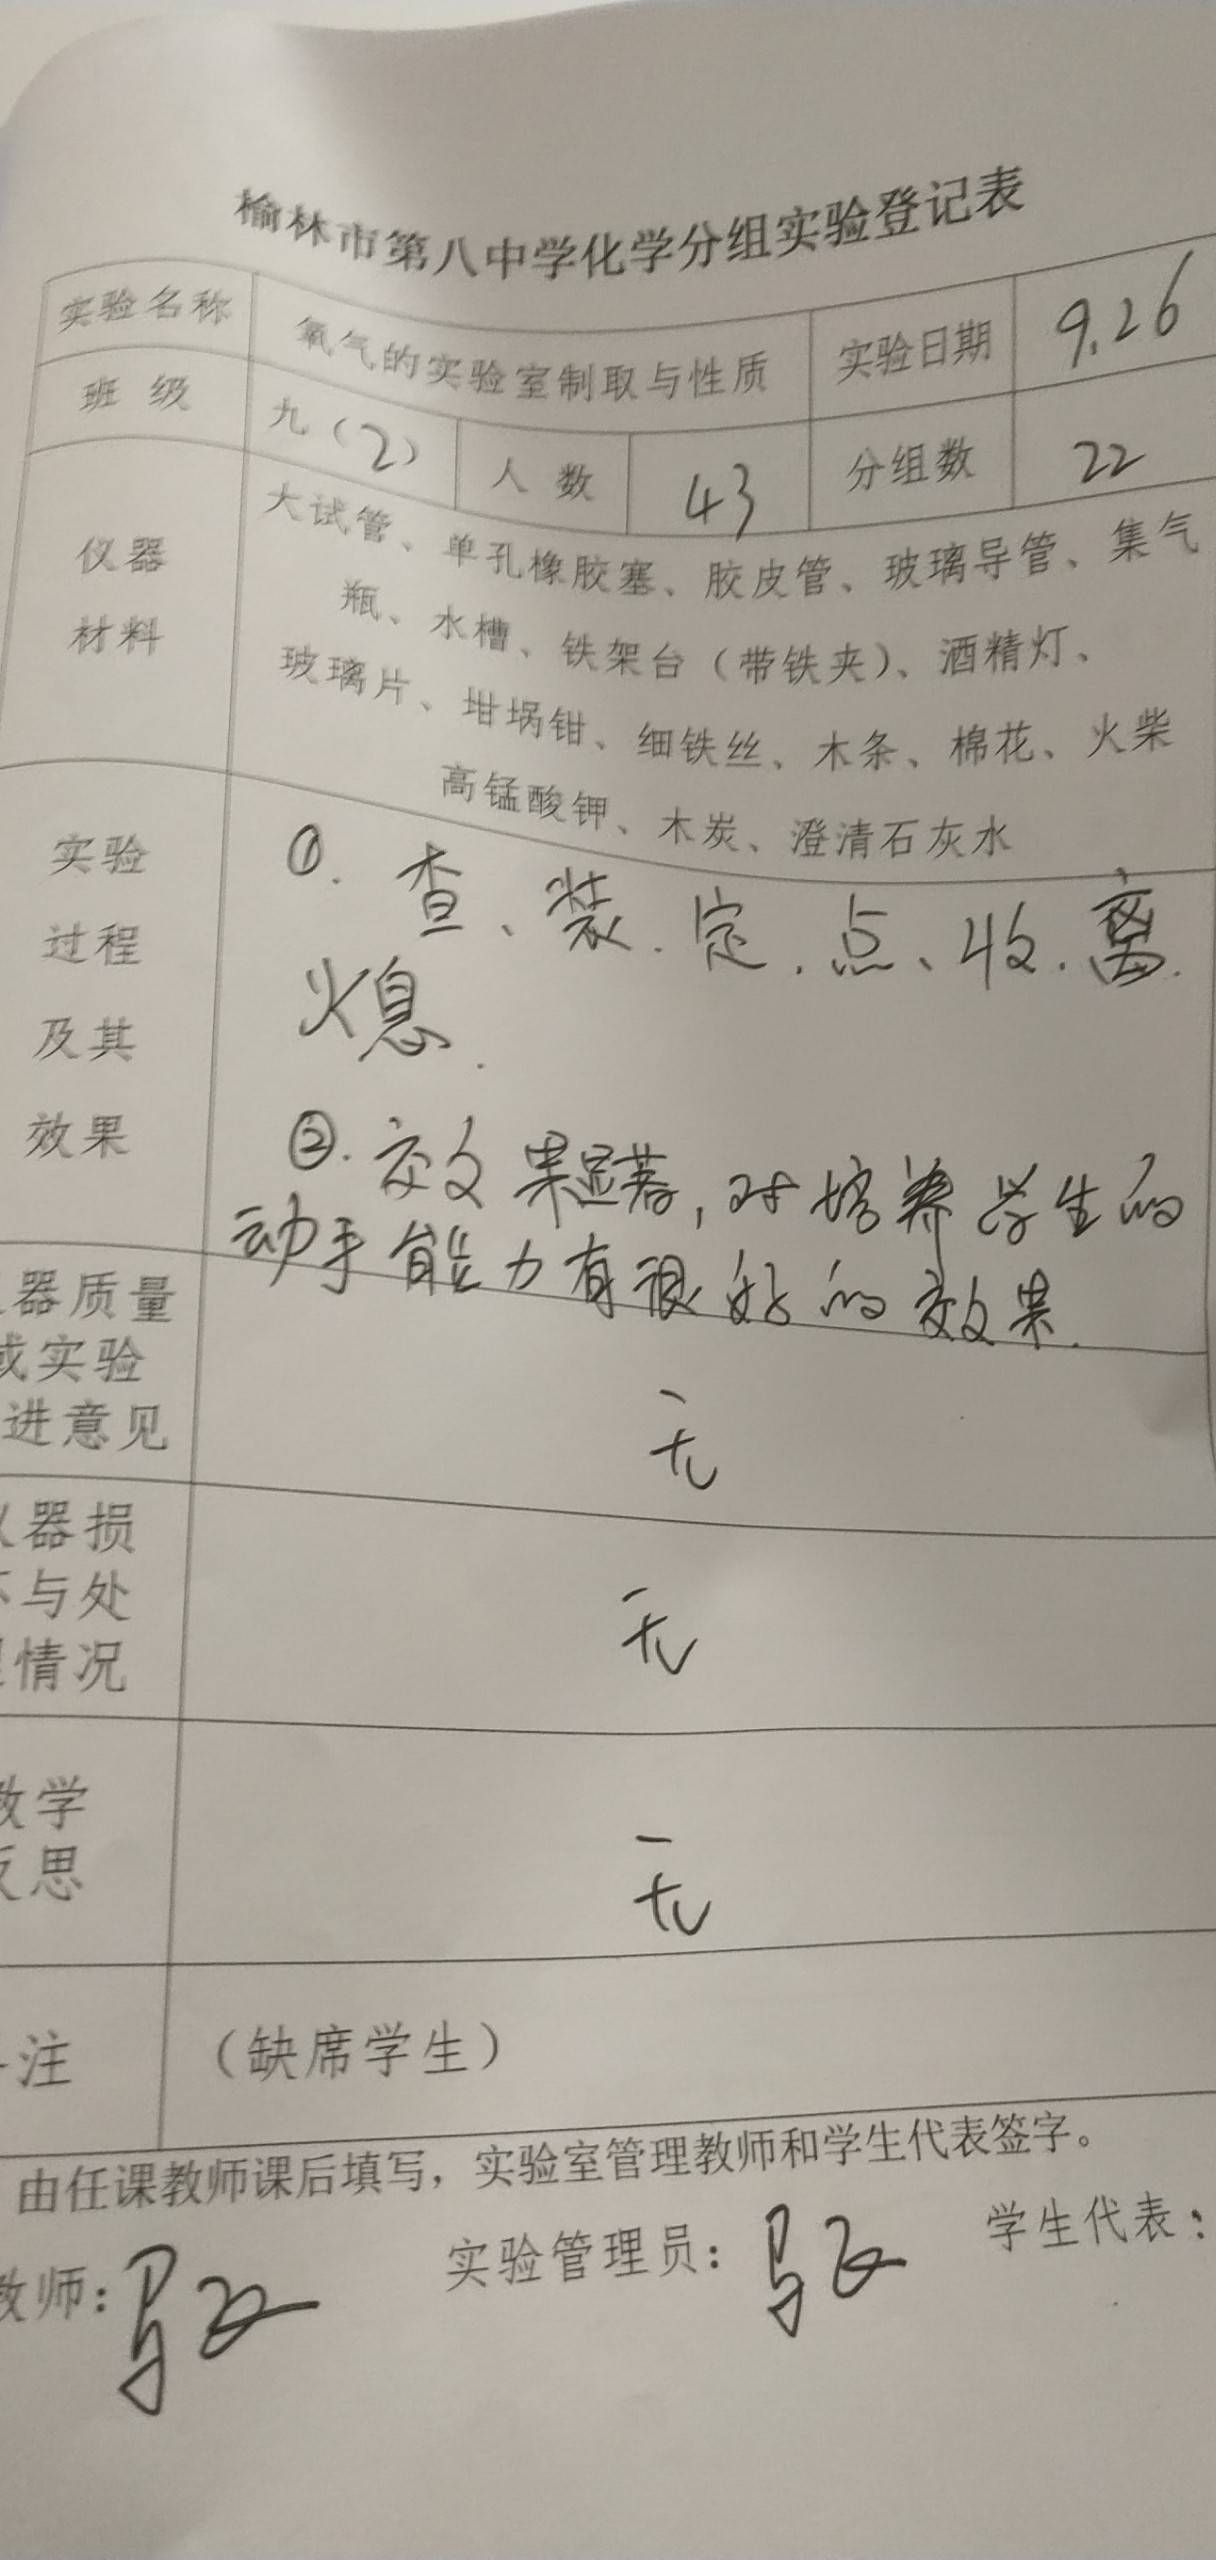 榆林市第八中学化学分组实验登记表
实验名称 氧气的实验室制取与性质 实验日期 9.26
班 级 九（2） 人 数 43 分组数 22
仪器
材料
大试管、单孔橡胶塞、胶皮管、玻璃导管、集气
瓶、水槽、铁架台（带铁夹）、酒精灯、
玻璃片、坩埚钳、细铁丝、木条、棉花、火柴
高锰酸钾、木炭、澄清石灰水
实验
过程
及其
效果
①. 查、装.定.点、收.离.
火息.
②.效果显著,对培养学生的
动手能力有很好的效果.
器质量
或实验
进意见
无
器损
与处
情况
无
教学
反思
无
注
（缺席学生）
由任课教师课后填写，实验室管理教师和学生代表签字。
教师： 实验管理员： 学生代表：